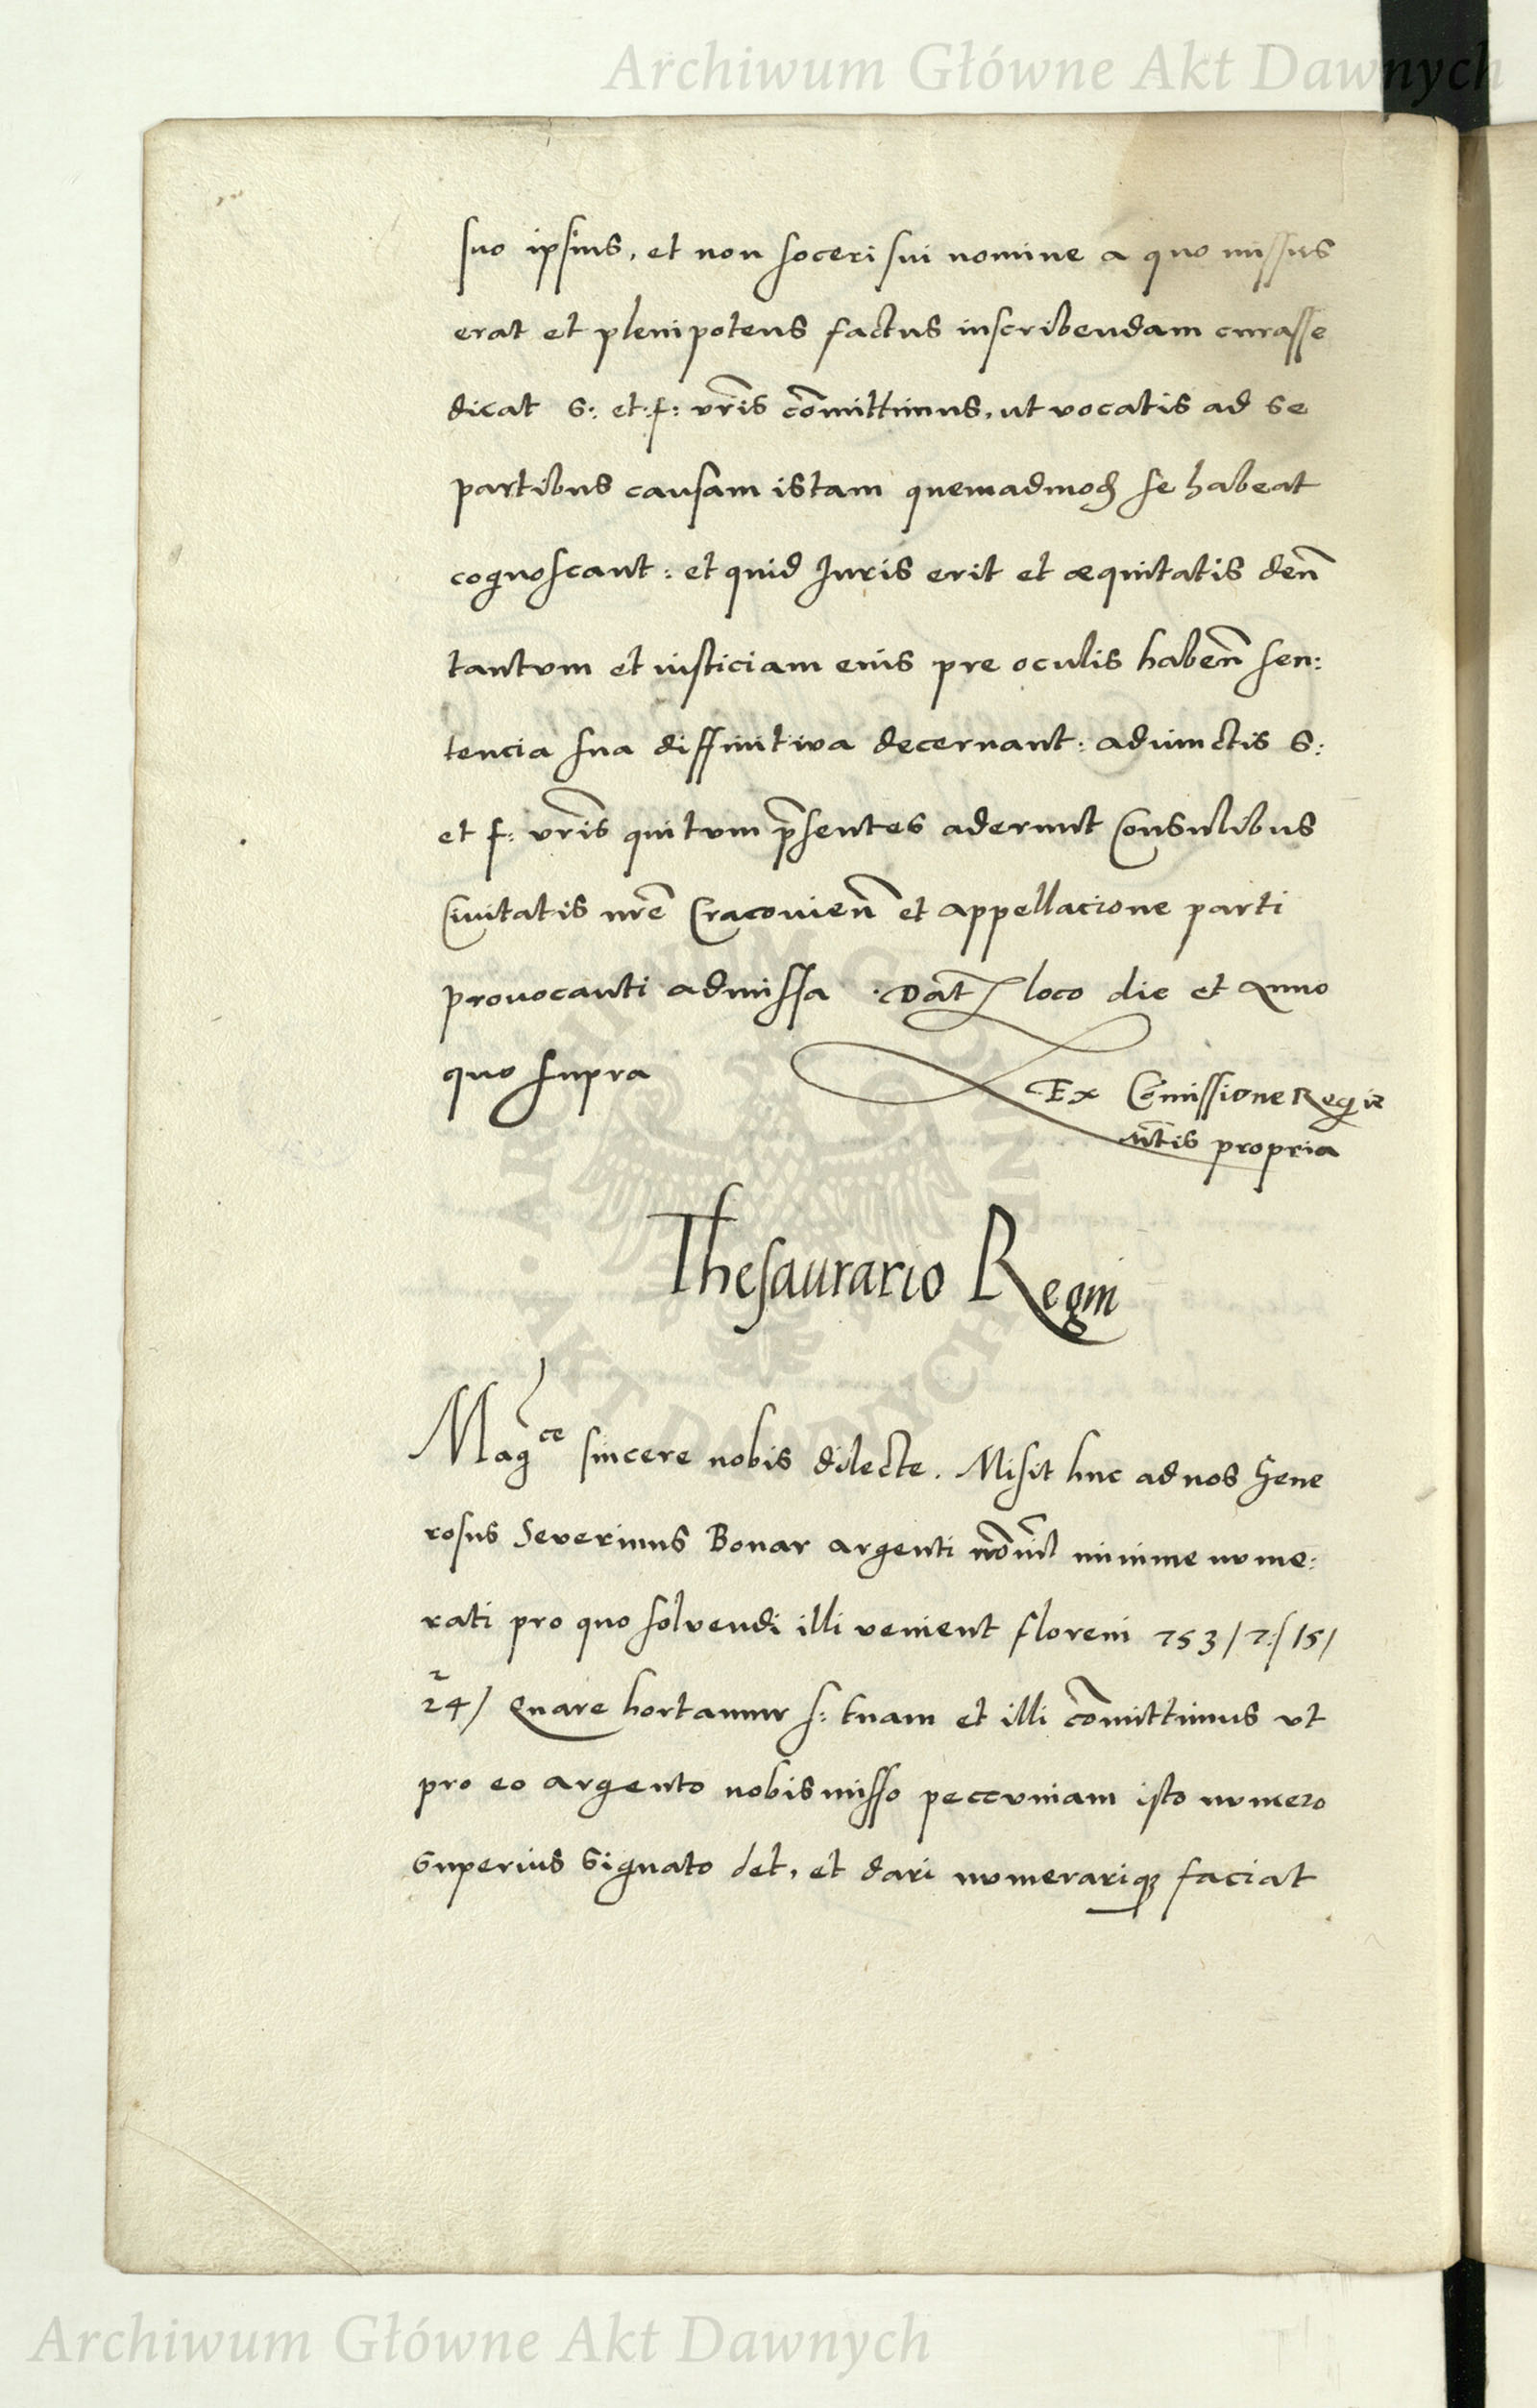 Archiwum Główne Akt Dawnych
suo ipsius, et non soceri sui nomine a quo missus
erat et plenipotens factus inscribendam curasse
dicat S: et f: vr̃is com̃ittimus, ut vocatis ad se
partibus causam istam quemadmod̃ se habeat
cognoscant: et quid Juris erit et æquitatis deñ
tantvm et iusticiam eius pre oculis habeñ sen:
tencia sua diffinitiva decernant: adiunctis S:
et f: vr̃is qui tvm p̃sentes aderunt Consulibus
Civitatis nr̃e Cracovieñ et appellacione parti
provocanti admissa. Dat̃ loco die et Anno
quo supra
Ex Com̃issione Regie
mt̃is propria
Thesaurario Regni
Mag^ce sincere nobis dilecte. Misit huc ad nos Gene
rosus Severinus Bonar argenti minime nvme:
rati pro quo solvendi illi venient floreni 753/7/15/
24/ Quare hortamur s: tuam et illi com̃ittimus vt
pro eo argento nobis misso peccvniam isto nvmero
Superius Signato det, et dari nvmerariqꝫ faciat
ARCHIWUM GŁÓWNE AKT DAWNYCH
Archiwum Główne Akt Dawnych